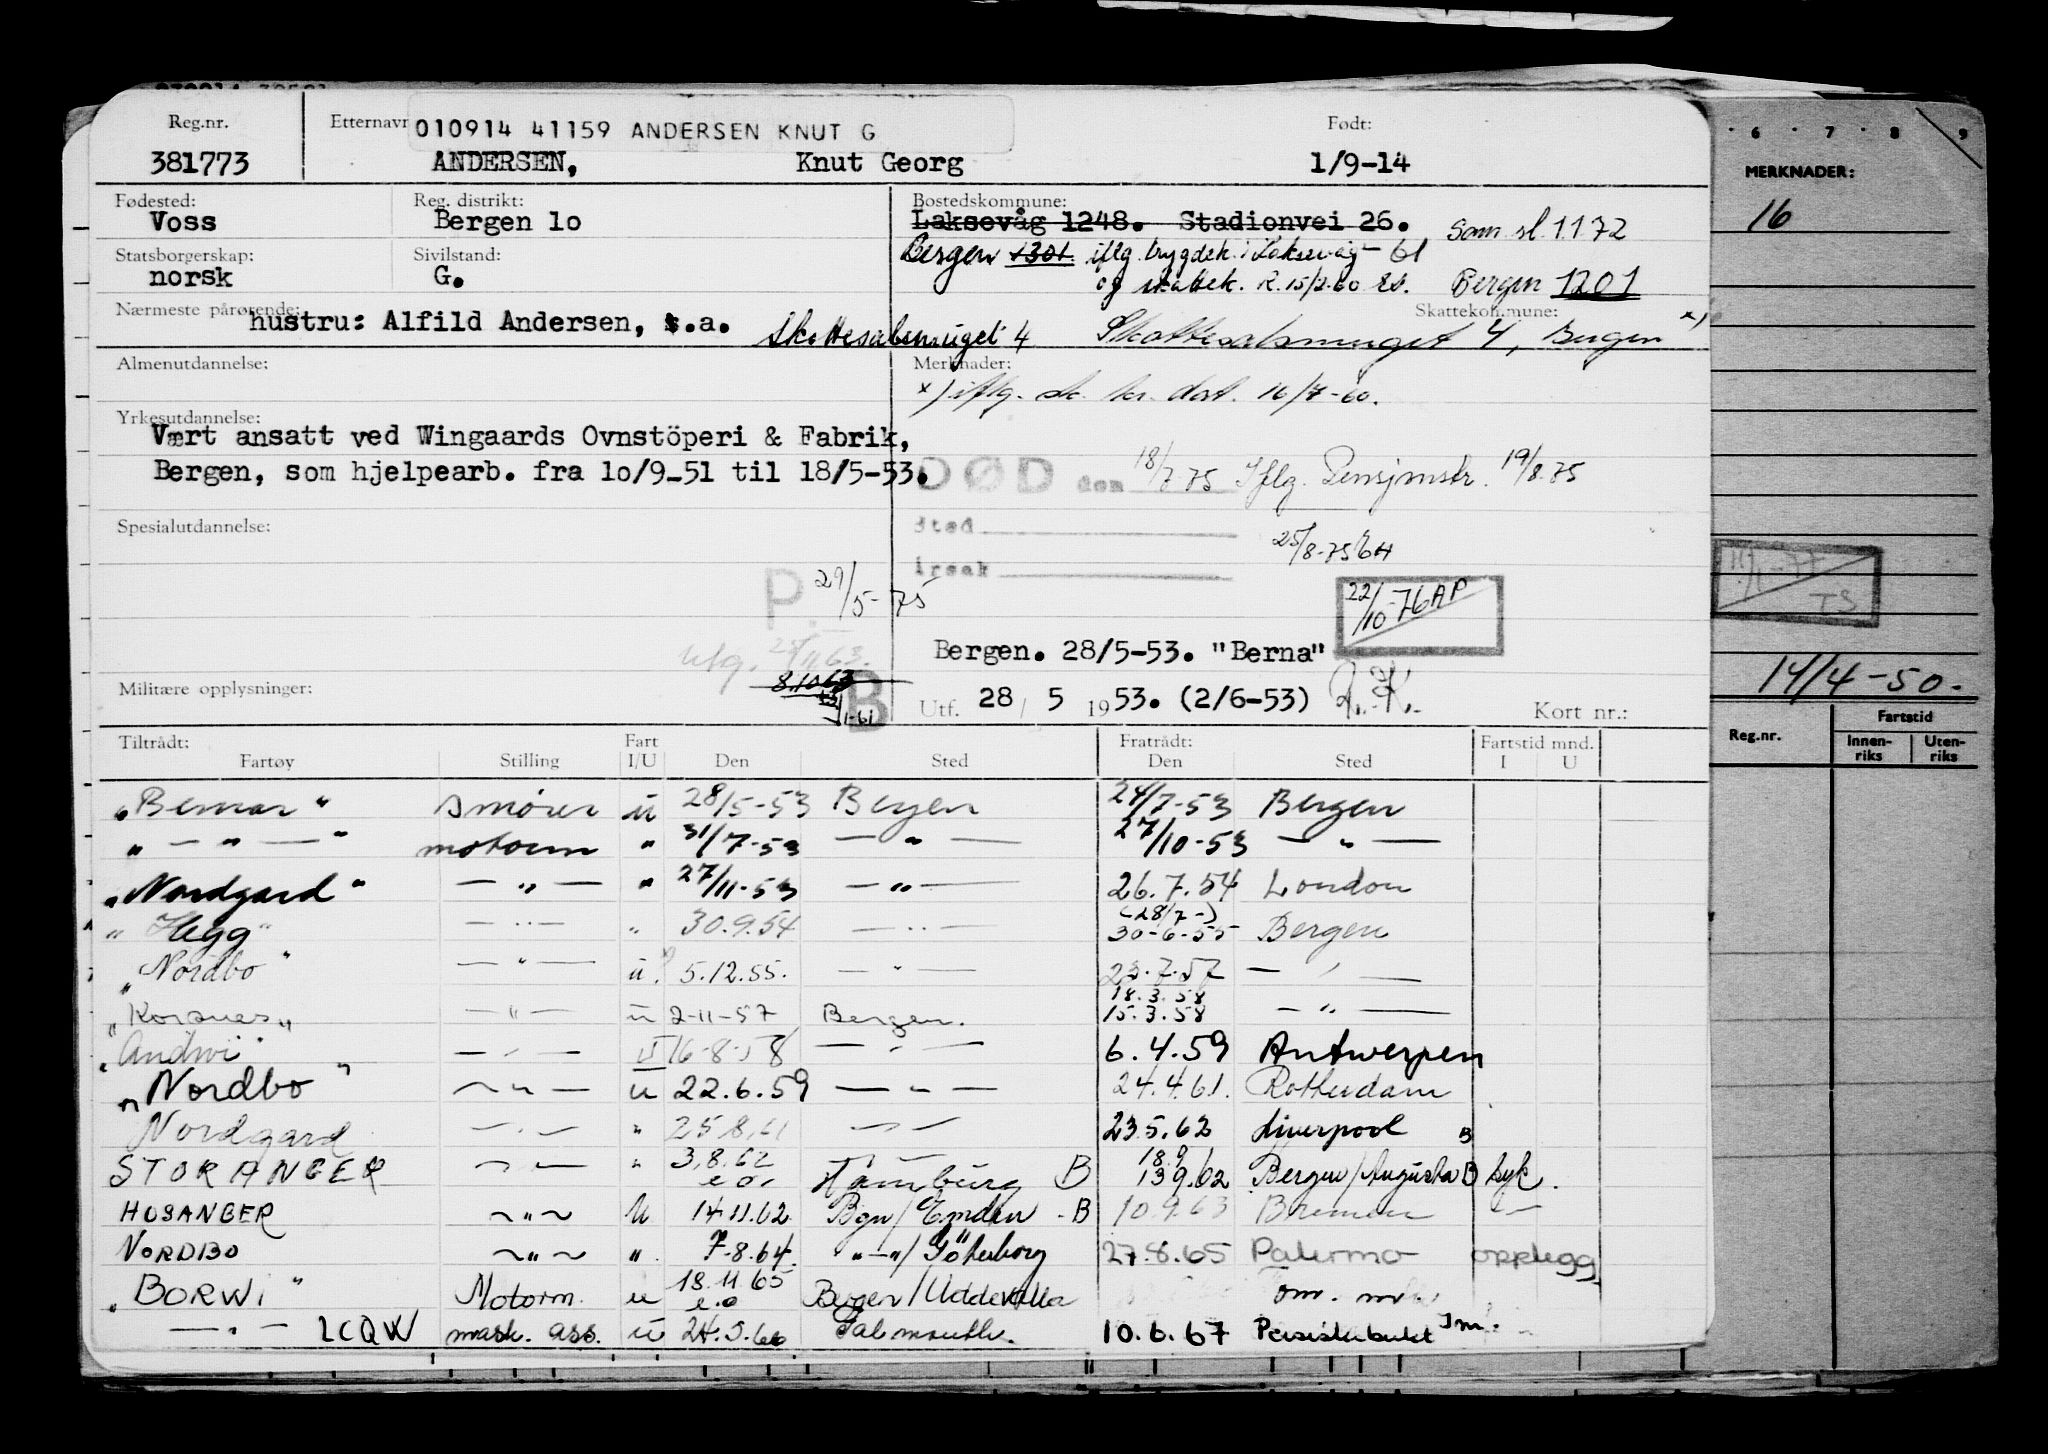 Reg.nr. Etternavn 010914 41159 ANDERSEN KNUT G Født:
381773 ANDERSEN, Knut Georg 1/9-14
Fødested: Reg. distrikt: Bostedskommune:
Voss Bergen 1o Laksevåg 1248. Stadionvei 26. Sam. sl. 1.1.72
Statsborgerskap: Sivilstand: Bergen 1301 iflg. trygdek. i Laksevåg - 61
norsk G. og skattek. R. 15/2-60 Bergen 1201
Nærmeste pårørende: Skattekommune:
hustru: Alfild Andersen, s.a. Skottesalsmuget 4 Skottesalsmuget 4, Bergen x)
Almenutdannelse: Merknader:
x) iflg. sk. kr. dat. 16/7-60.
Yrkesutdannelse:
Vært ansatt ved Wingaards Ovnstöperi & Fabrik,
Bergen, som hjelpearb. fra 1o/9-51 til 18/5-53.
DØD den 18/7-75 Iflg. Pensjonstr. 19/8-75
Spesialutdannelse: Sted
25/8-75
årsak
P. 29/5-75
22/10-76 AP
Bergen. 28/5-53. "Berna"
Militære opplysninger: 8.10.63 B
Utf. 28 / 5 1953. (2/6-53) Kort nr.:
Tiltrådt: Fart Fratrådt: Fartstid mnd.
Fartøy Stilling I/U Den Sted Den Sted I U
"Bernar" smører u 28/5-53 Bergen 24/7-53 Bergen
" — " — " motorm " 31/7-53 — " — 27/10-53 — " —
"Nordgard" — " — " 27/11-53 — " — 26.7.54 London
(28/7-)
"Hegg" — " — " 30.9.54 — " — 30-6-55 Bergen
"Nordbo" — " — u. 5.12.55. — " — 23.7.57 — " —
18.3.58
"Korsnes" — " — u 2-11-57 Bergen. 15.3.58 — " —
"Andwi" — " — U 16-8-58 — " — 6.4.59 Antwerpen
"Nordbo" — " — u 22.6.59 — " — 24.4.61. Rotterdam
Nordgard — " — " 25.8.61 — " — 23.5.62 Liverpool B
STORANGER — " — " 3.8.62 e.o. Hamburg B 18.9 13.9.62 Bergen/Augusta B syk.
HOSANGER — " — U 14.11.62. Bgn/Emden - B 10.9.63 Bremen
NORDBO — " — " 7-8.64. " — " / Göteborg 27.8.65 Palermo opplegg
"BORWI" Motorm. u 18.11.65 e.o Bergen/Uddevalla om. m
— " — LCQW mask. ass. u 24.5.66 Falmouth. 10.6.67 Persiskebukt Im.
6 7 8 9
MERKNADER:
16
14/4-50.
Reg.nr. Fartstid
Innenriks Utenriks